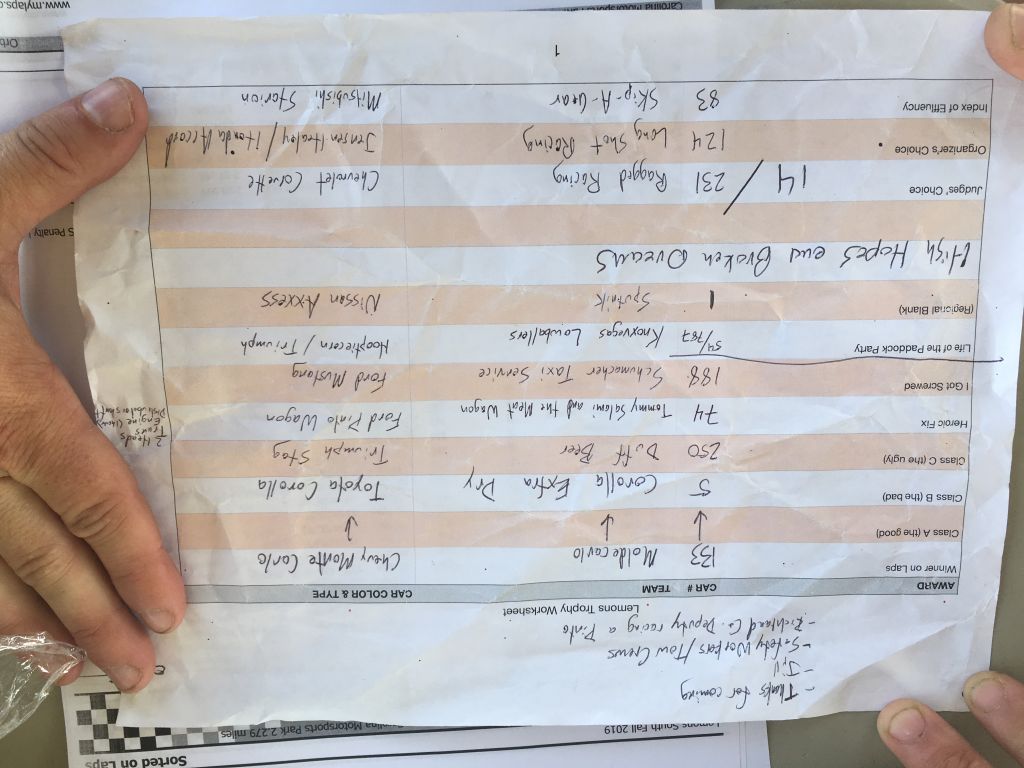 - Thanks for coming
- Safety Workers / Tow Crews
- Richland Co. Deputy racing a Pinto
Lemons Trophy Worksheet
AWARD CAR # TEAM CAR COLOR & TYPE
Winner on Laps 133 Moldecarlo Chevy Monte Carlo
Class A (the good) ↓ ↓ ↓
Class B (the bad) 5 Corolla Extra Dry Toyota Corolla
Class C (the ugly) 250 Duff Beer Triumph Stag
Heroic Fix 74 Tommy Salami and the Meat Wagon Ford Pinto Wagon
2 Heads
Trans
I Got Screwed 188 Schumacher Taxi Service Ford Mustang
Life of the Paddock Party 54/787 Knoxvegas Lowballers Hooptiecorn / Triumph
(Regional Blank) 1 Sputnik Nissan Axxess
High Hopes and Broken Dreams
Judges' Choice 14 / 231 Ragged Racing Chevrolet Corvette
Organizer's Choice 124 Long Shot Racing Jensen Healey / Honda Accord
Index of Effluency 83 Skip-A-Gear Mitsubishi Starion
1
Sorted on Laps
Lemons South Fall 2019
Carolina Motorsports Park 2.279 miles
Carolina Motorsports
www.mylaps.c
Orb
S Penalty